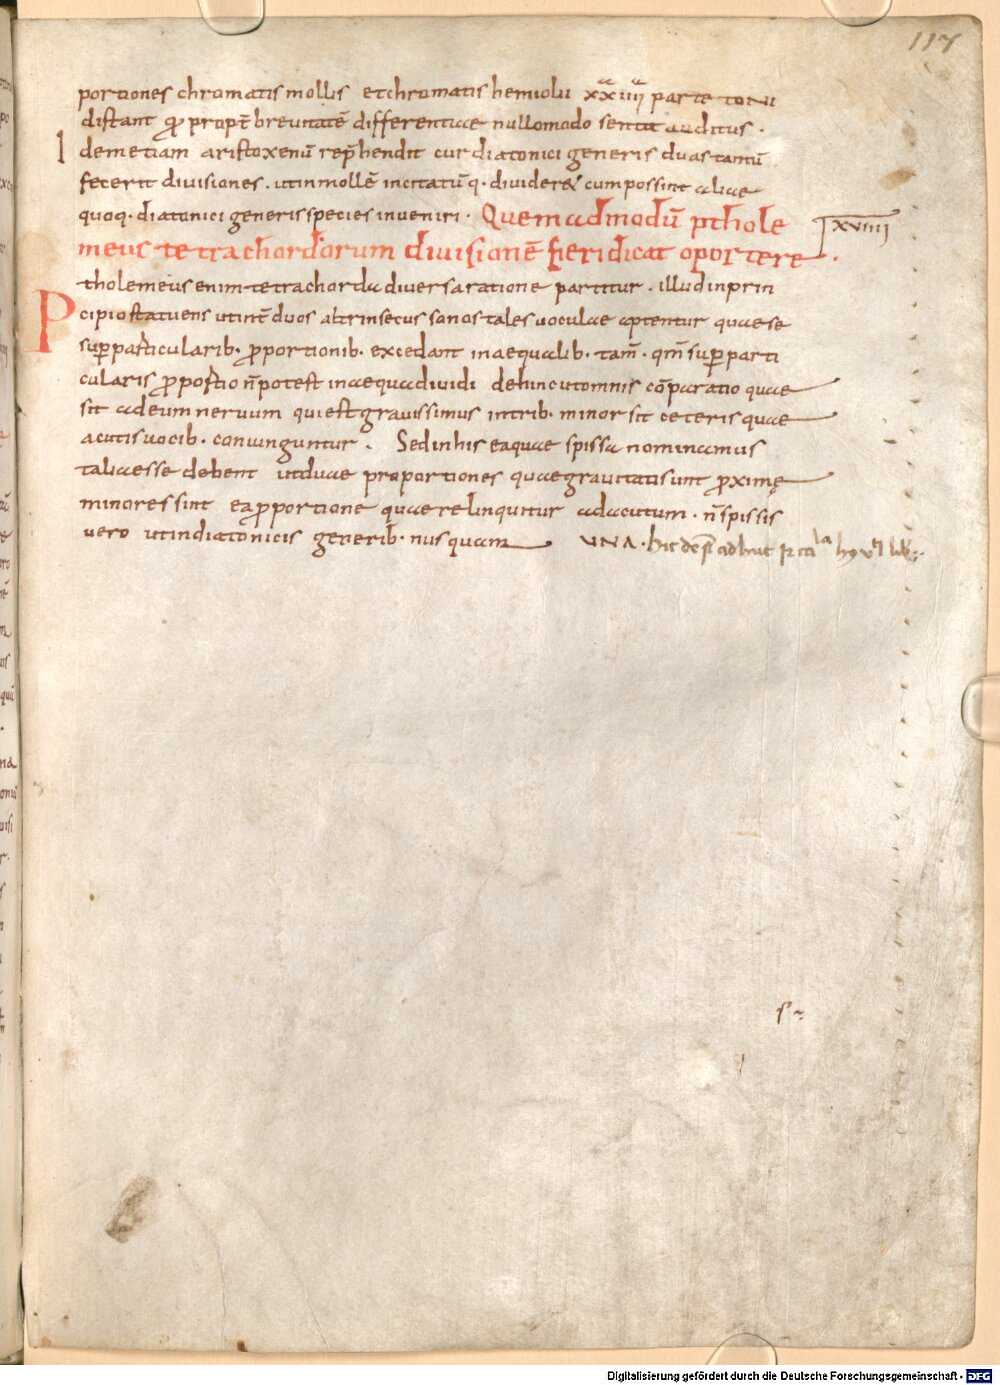 117
portiones chromatis mollis et chromatis hemiolii xxiiii parte toni
distant qđ propt̄ breuitatē differentiae nullomodo sentit auditus .
Idem etiam aristoxenū rep̄hendit cur diatonici generis duas tantū
fecerit diuisiones . ut in mollē incitatūq . diuideret cum possint aliae
quoq . diatonici generis species inueniri . Quemadmodū pthole
meus tetrachordorum diuisionē fieri dicat oportere . XVIIII
Ptholemeus enim tetrachorda diuersa ratione partitur . illud in prin
cipio statuens ut int̄ duos altrinsecus sonos tales uoculae aptentur quae se
sup̄particularib . p̄portionib . excedant inaequalib . tam̄ . qm̄ sup̄parti
cularis p̄portio n̄ potest in aequa diuidi dehinc ut omnis cōparatio quae
sit ad eum neruum qui est grauissimus in trib . minor sit ceteris quae
acutis uocib . coniunguntur . Sed in his ea quae spissa nominamus
talia esse debent ut duae proportiones quae grauitati sunt p̄ximę
minores sint ea p̄portione quae relinquitur ad acutum . n̄ spissis
uero ut in diatonicis generib . nusquam UNA . hic deſt adhuc
Digitalisierung gefördert durch die Deutsche Forschungsgemeinschaft - DFG